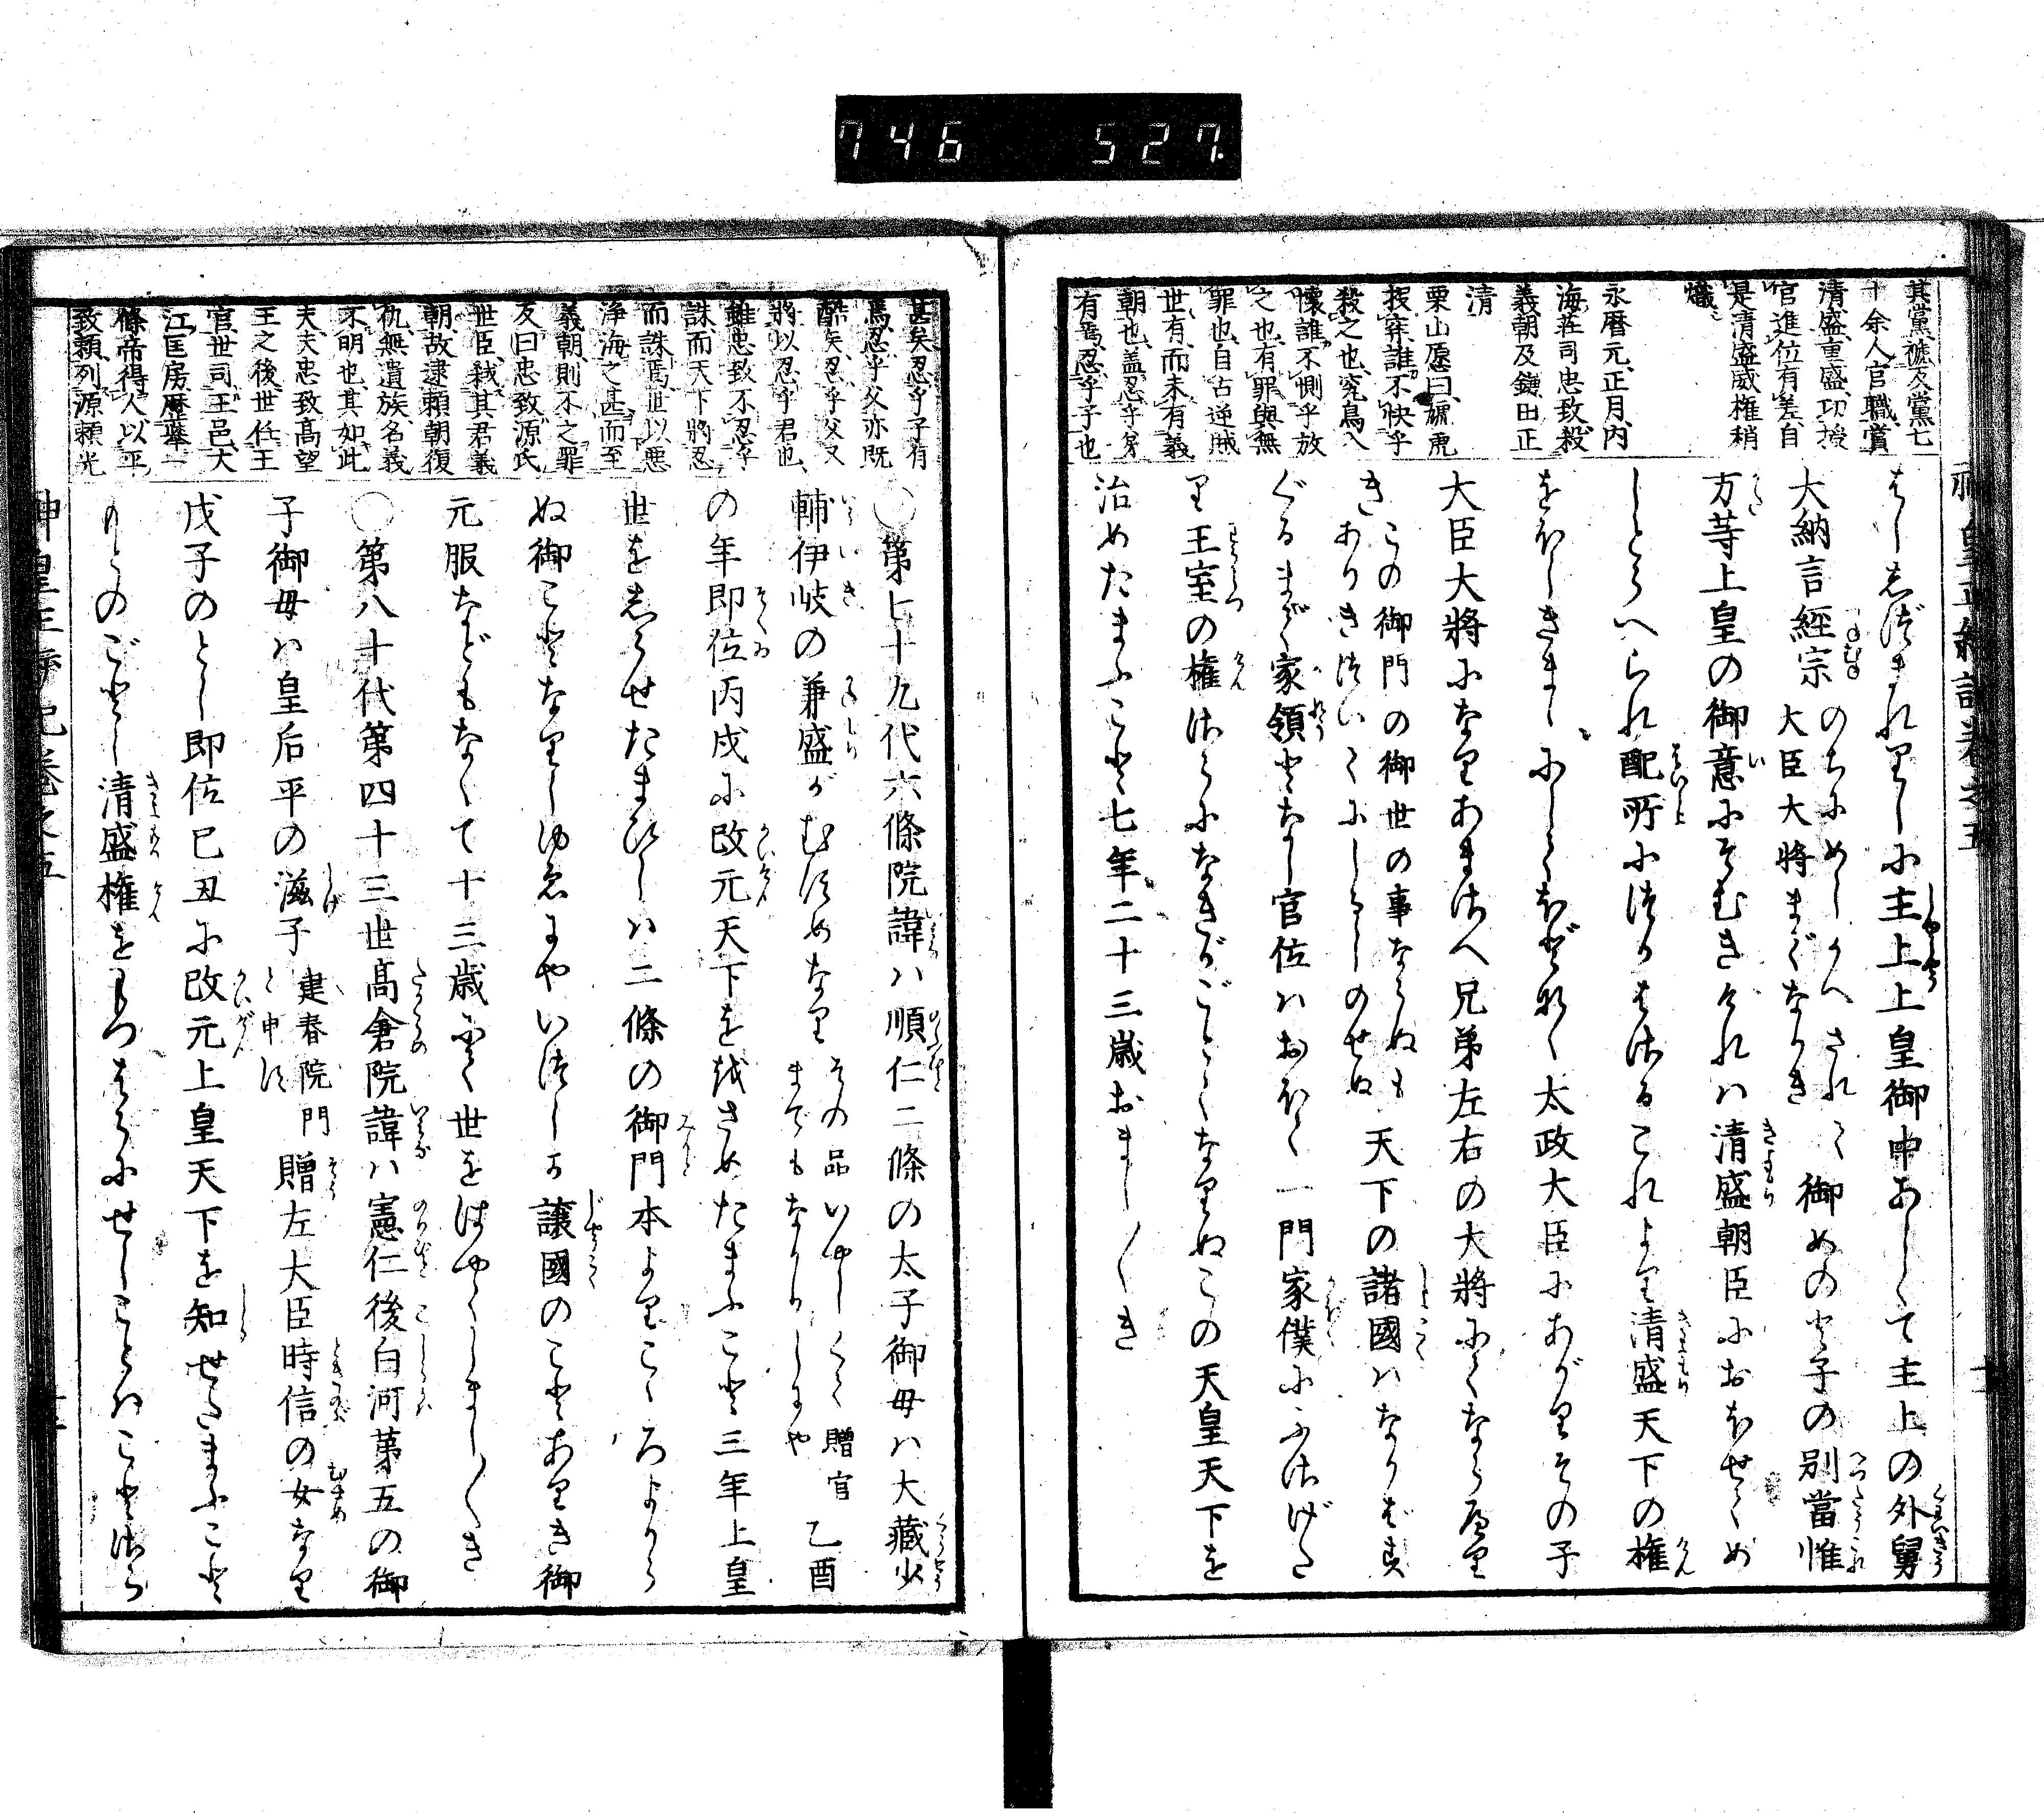 746 527
其黨襃及黨七
十余人官職賞
清盛重盛功授
官進位有差自
是清盛威権稍
熾
永暦元正月内
海荘司忠致殺
義朝及鎌田正
清
栗山愿曰媚虎
投穽誰不快乎
殺之也窮鳥入
懐誰不惻乎放
之也有罪與無
罪也自古逆賊
世有而未有義
朝也盖忍乎弟
有焉忍乎子也
大納言經宗 のちにめしかへされて大臣大将までなりき 御めのと子の別當惟
方等上皇の御意にそむきければ清盛朝臣におほせてめ
しとらへられ配所につかはさるこれより清盛天下の権
をほしきまゝにしてほどなく太政大臣にあがりその子
大臣大将になりあまさへ兄弟左右の大将にてならべり
きこの御門の御世の事ならぬもありきついてにしるしのせぬ 天下の諸國はなかばす
ぐるまで家領となし官位はおほく一門家僕にふさげた
り王室の権さらになきがごとくなりぬこの天皇天下を
治めたまふこと七年二十三歳おまし〱き
甚矣忍乎子有
焉忍乎父亦既
酷矣忍乎父又
將以忍乎君也
雖忠致不忍乎
誅而天下將忍
而誅焉世以悪
浄海之甚而至
義朝則不之罪
反曰忠致源氏
世臣我其君義
朝故逮頼朝復
仇無遺族名義
不明也其如此
夫夫忠致髙望
王之後世任王
官世司王邑大
江匡房暦舉一
條帝得人以平
致頼列源頼光
◯第七十九代六條院諱は順仁二條の太子御母は大藏少
輔伊岐の兼盛がむすめなり その品いやしくて贈官までもなかりしにや 乙酉
の年即位丙戌に改元天下を治さめたまふこと三年上皇
世をしらせたまひしは二條の御門本よりこゝろよから
ぬ御ことなりしゆゑにやいつしか譲國のことありき御
元服などもなくて十三歳にて世をはやくしまし〱き
◯第八十代第四十三世髙倉院諱は憲仁後白河第五の御
子御母は皇后平の滋子 建春院門と申す 贈左大臣時信の女なり
戊子のとし即位己丑に改元上皇天下を知せたまふこと
もとのごとし清盛権をもつはらにせしことはことさら
神皇正統記巻之五